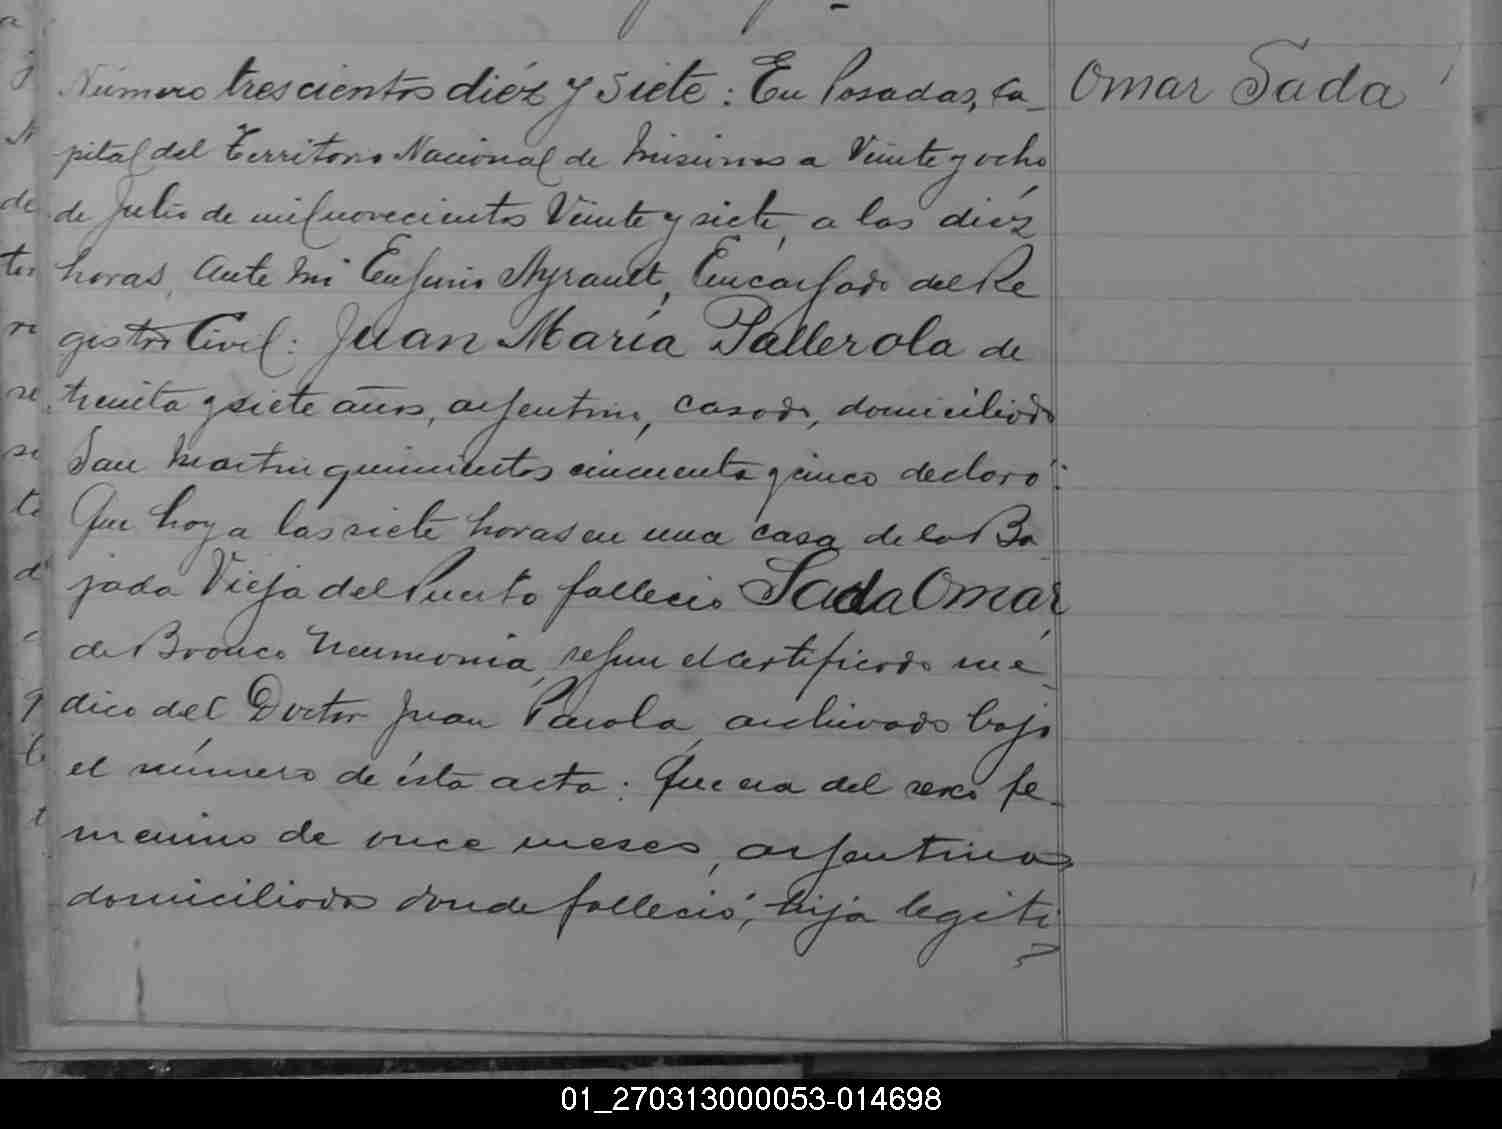 Omar Sada
Número trescientos diéz y siete: En Posadas, Ca_
pital del Territorio Nacional de Misiones a Veinte y ocho
de Julio de mil novecientos Veinte y siete, a las diéz
horas, ante mi Eugenio Ayrault, Encargado del Re
gistro Civil: Juan María Pallerola de
treinta y siete años, argentino, casado, domiciliado
San Martin quinientos cincuenta y cinco declaró:
Que hoy a las siete horas en una casa de la Ba
jada Vieja del Puerto fallecio Sada Omar
de Bronco Neumonia, segun el certificado mé_
dico del Doctor Juan Parola, archivado bajo
el número de ésta acta: Que era del sexo fe_
menino de once meses, argentina,
domiciliada donde falleció, hija legiti
01_270313000053-014698